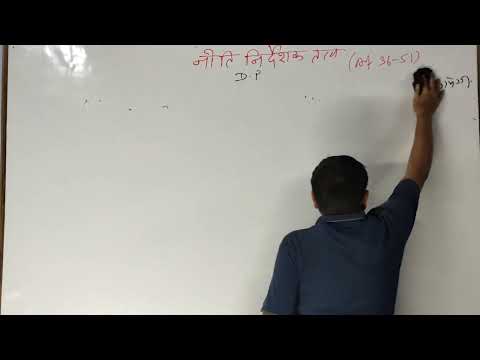 नीति निर्देशक तत्व (Art 36-51)
D.P